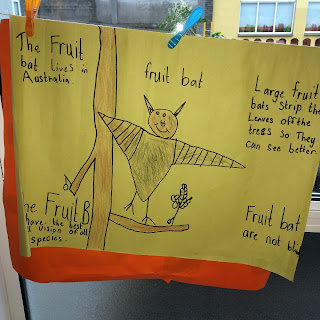 The Fruit
bat Lives in
Australia.
fruit bat
Large fruit
bats Strip the
Leaves off the
trees so They
can see better.
The Fruit B
have the best
vision of all
species.
Fruit bat
are not bli